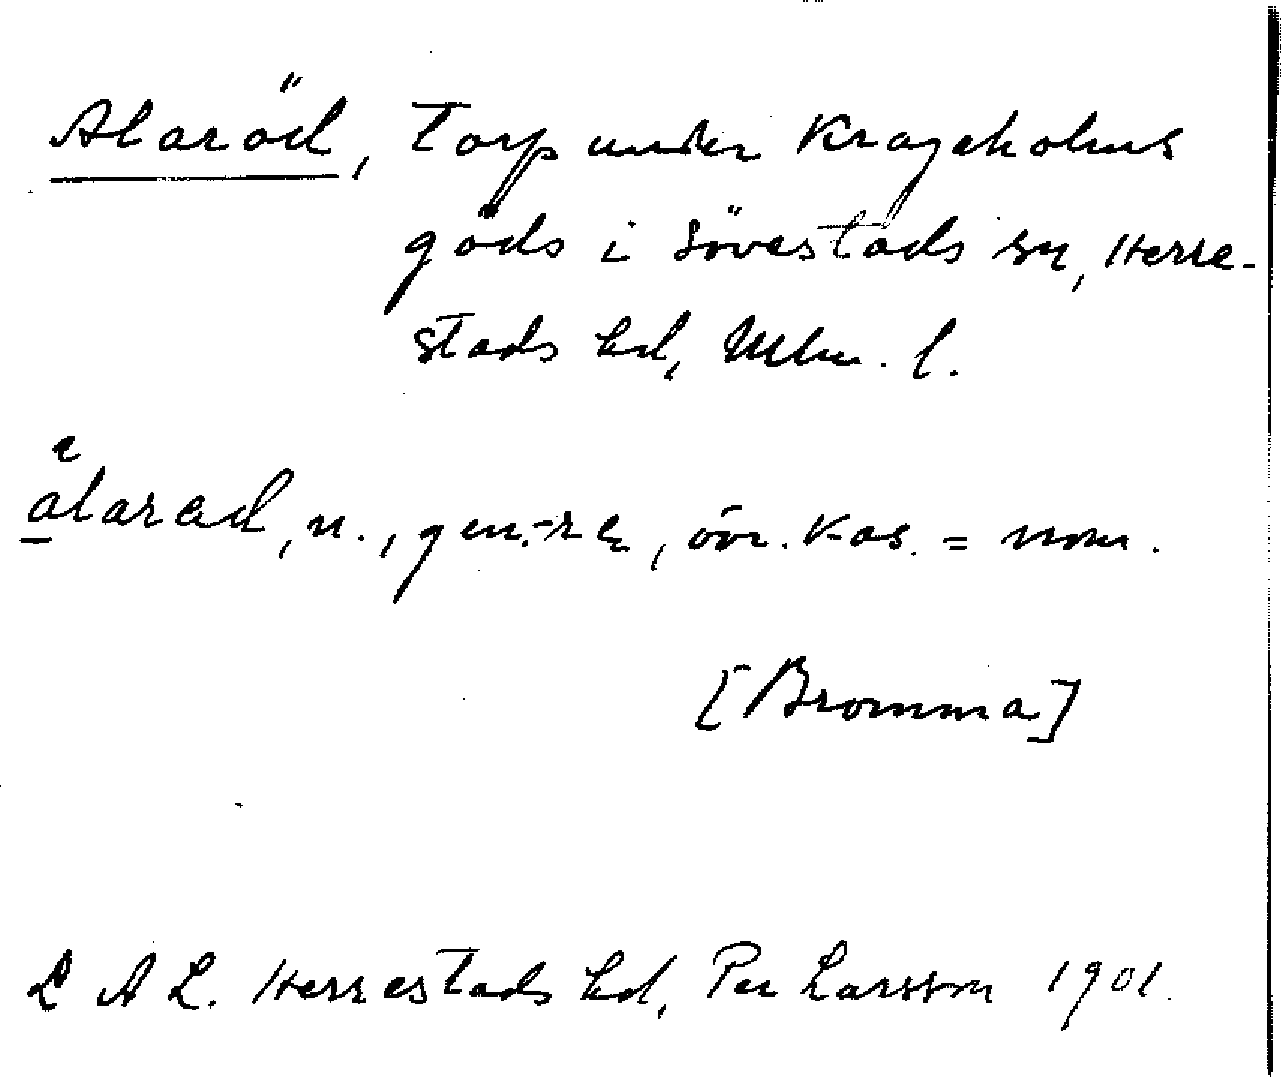 Alaröd, Torp under Krageholms
gods i Sövestads sn, Herre-
stads hd, Mlm. l.
alarad, n., gen. -
, övr. kas. = nom.
[Bromma]
L A L. Herrestads hd, Per Larsson 1901.